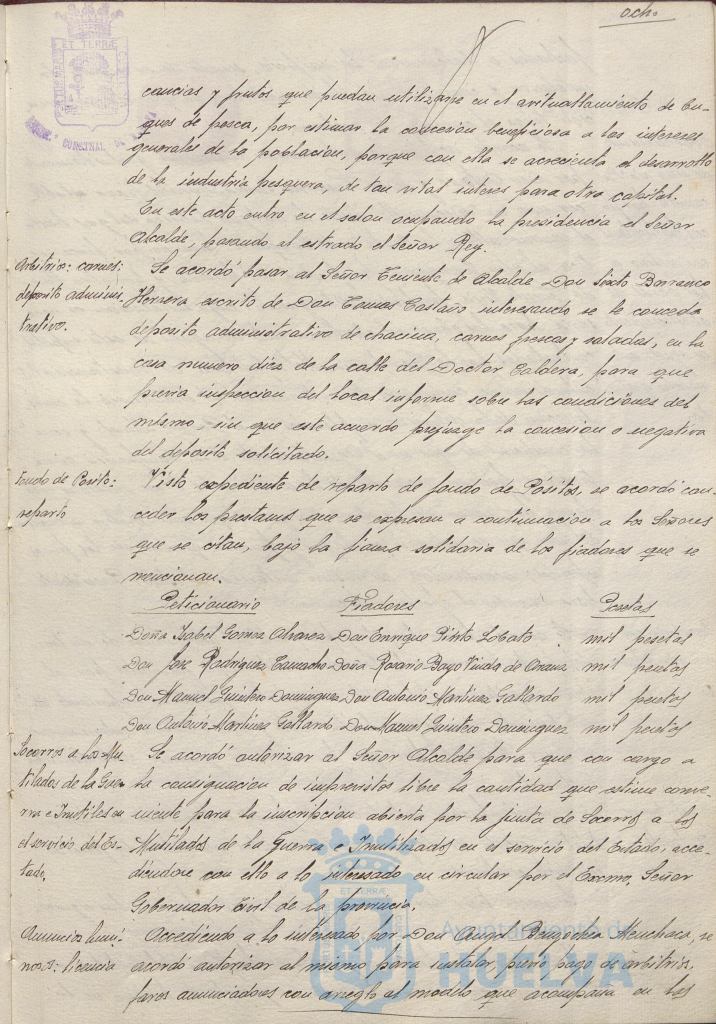 ocho
cancias y frutos que puedan utilizarse en el avituallamiento de bu-
ques de pesca, por estimar la concesion beneficiosa a los intereses
generales de la poblacion, porque con ella se acrecienta el desarrollo
de la industria pesquera, de tan vital interes para otra capital.
En este acto entro en el salon ocupando la presidencia el Señor
Alcalde, pasando al estrado el Señor Rey.
Arbitrios: carnes:
deposito adminis-
trativo.
Se acordó pasar al Señor Teniente de Alcalde Don Sixto Barranco
Herrera escrito de Don Tomas Castaño interesando se le conceda
deposito administrativo de chacina, carnes frescas y saladas, en la
casa numero diez de la calle del Doctor Caldera, para que
previa inspeccion del local informe sobre las condiciones del
mismo, sin que este acuerdo prejuzge la concesion o negativa
del deposito solicitado.
Fondo de Posito:
reparto
Visto expediente de reparto de fondo de Pósitos, se acordó con-
ceder los prestamos que se expresan a continuacion a los Señores
que se citan, bajo la fianza solidaria de los fiadores que se
mencionan.
Peticionario Fiadores Pesetas
Doña Isabel Gomez Alvarez Don Enrique Pinto Lobato mil pesetas
Don Jose Rodriguez Camacho Doña Rosario Bayo Viuda de mil pesetas
Don Manuel Quintero Dominguez Don Antonio Martinez Gallardo mil pesetas
Don Antonio Martinez Gallardo Don Manuel Quintero Dominguez mil pesetas
Socorros a los Mu-
tilados de la Gue-
rra e Inutiles en
el servicio del Es-
tado.
Se acordó autorizar al Señor Alcalde para que con cargo a
la consignacion de imprevistos libre la cantidad que estime conve-
niente para la inscripcion abierta por la junta de Socorro a los
Mutilados de la Guerra e Inutilizados en el servicio del Estado, acce-
diendose con ello a lo interesado en circular por el Excmo. Señor
Gobernador Civil de la provincia.
Anuncios lumi-
nosos: licencia
Accediendo a lo interesado por Don Angel Bengochea Menchaca, se
acordó autorizar al mismo para instalar previo pago de arbitrios,
faros anunciadores con arreglo al modelo que acompaña en las
ET TERRÆ
Ayuntamiento de
HUELVA